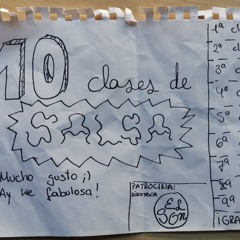 10 clases de
SALSA
Mucho gusto ;)
Ay ke fabulosa!
PATROCINA:
DISCOTECA
EL
SON
1ª cl
2ª cl
3ª c
4ª c
5ª c
6ª
7ª
8ª
9ª
¡GRA